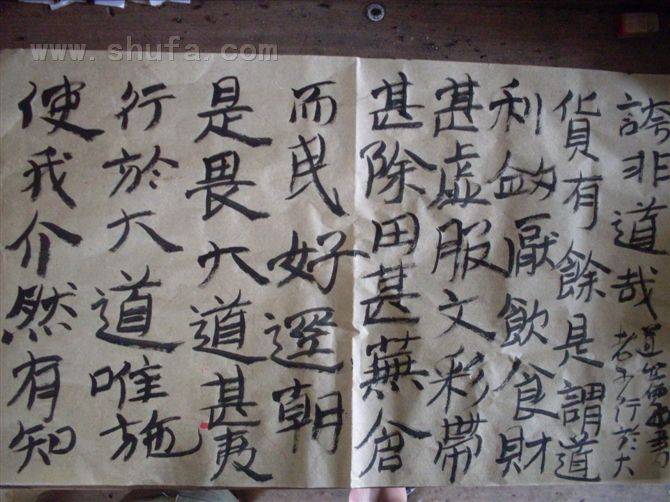 www.shufa.com
使我介然有知
行於大道唯施
是畏大道甚夷
而民好逕朝
甚除田甚蕪倉
甚虛服文彩帶
利劍厭飲食財
貨有餘是謂道
誇非道哉
老子行於大
道